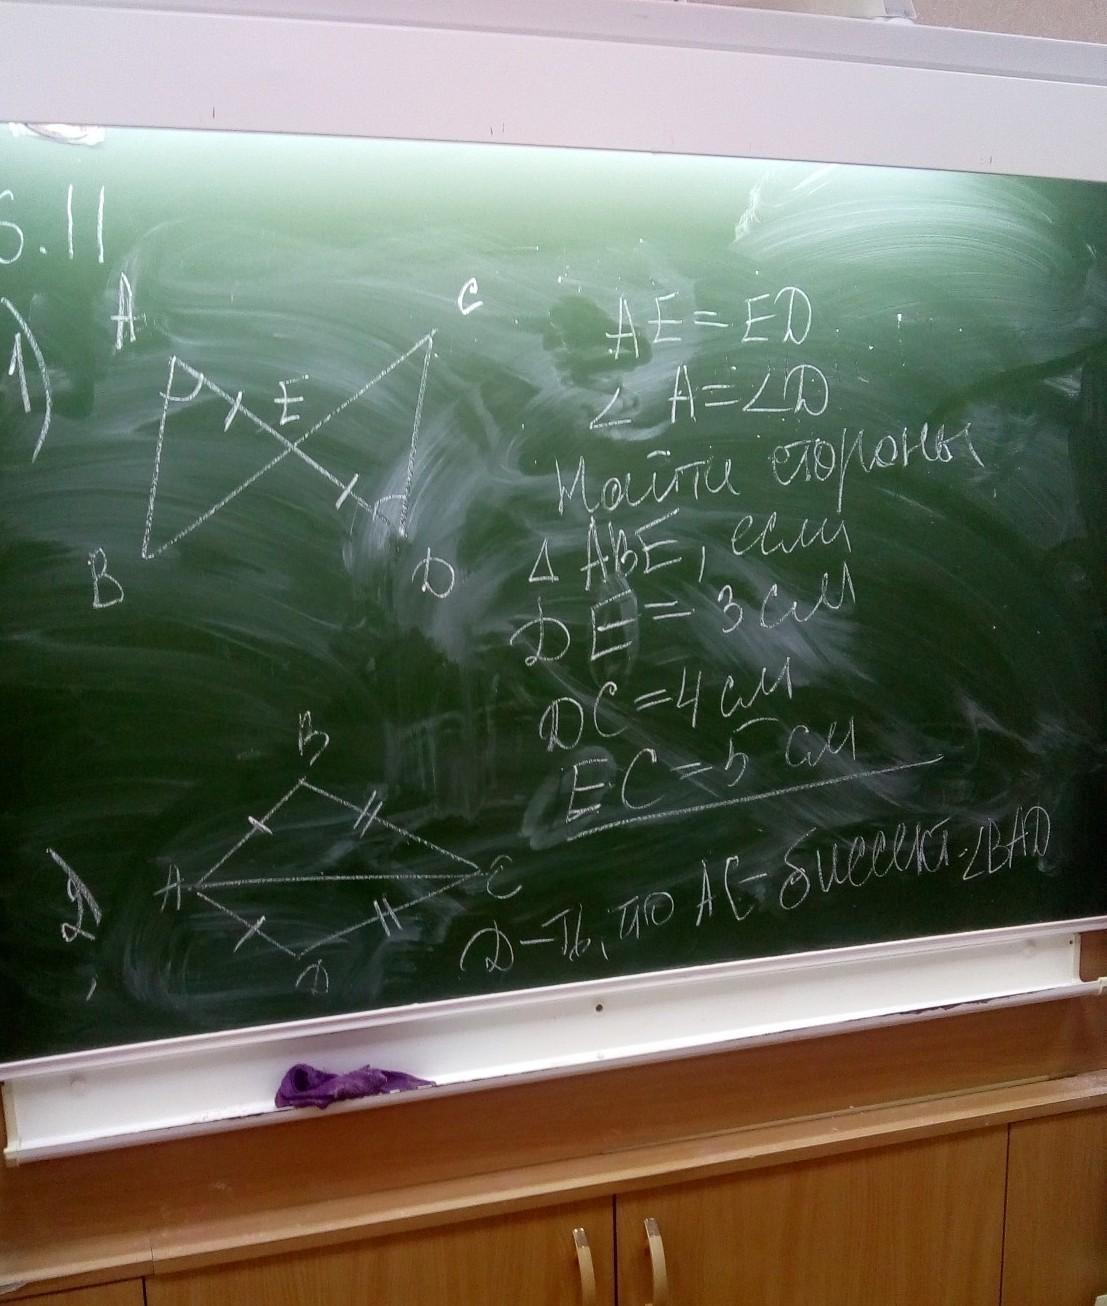 6.11
1)
A
C
E
B
D
AE = ED
∠ A = ∠D
Найти стороны
△ ABE, если
DE = 3 см
DC = 4 см
EC = 5 см
2)
B
A
C
D
Д-ть, что AC - биссект. ∠BAD